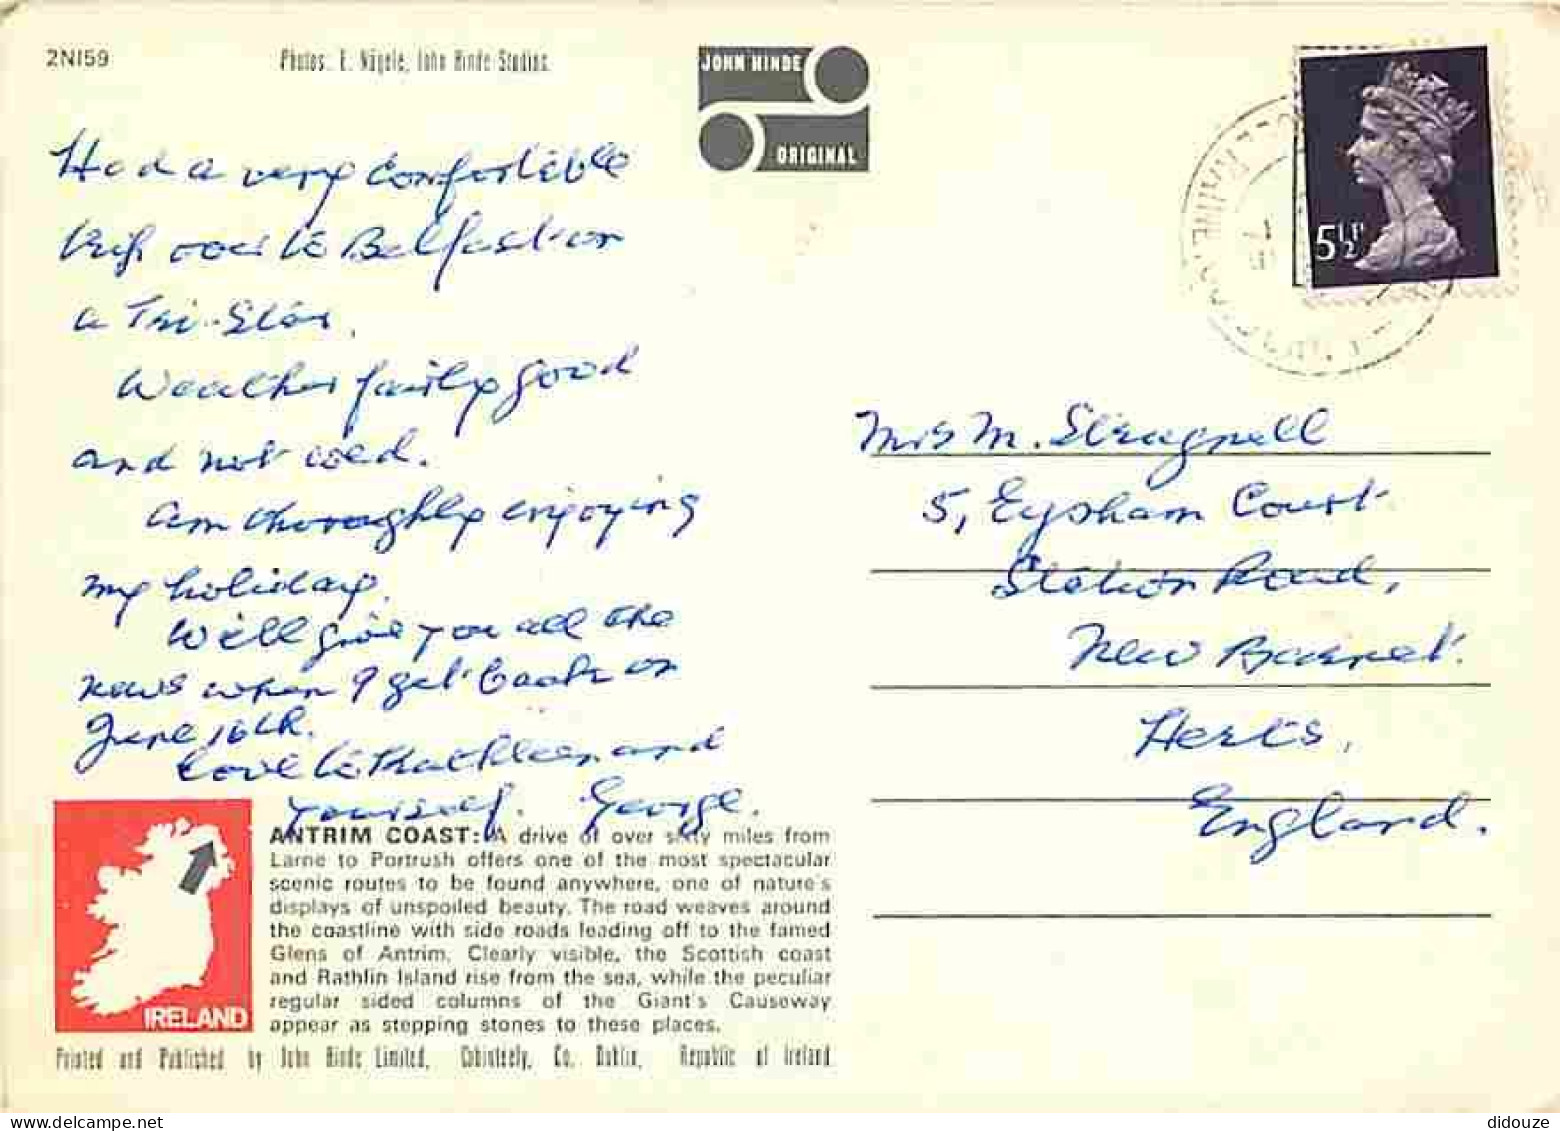 2NI59
Photos: E. Nägele, John Hinde Studios.
JOHN HINDE
ORIGINAL
5½P
Had a very comfortible
trip over to Belfast on
a Tri-Star.
Weather fairly good
and not cold.
Am thoroughly enjoying
my holiday.
We'll give you all the
news when I get back on
June 16th.
Love to Kathleen and
yourself. George.
Mrs M. Stragnell
5, Eypham Court
Station Road,
New Barnet.
Herts,
England.
IRELAND
ANTRIM COAST: A drive of over sixty miles from
Larne to Portrush offers one of the most spectacular
scenic routes to be found anywhere, one of nature's
displays of unspoiled beauty. The road weaves around
the coastline with side roads leading off to the famed
Glens of Antrim. Clearly visible, the Scottish coast
and Rathlin Island rise from the sea, while the peculiar
regular sided columns of the Giant's Causeway
appear as stepping stones to these places.
Printed and Published by John Hinde Limited, Cabinteely, Co. Dublin, Republic of Ireland
didouze